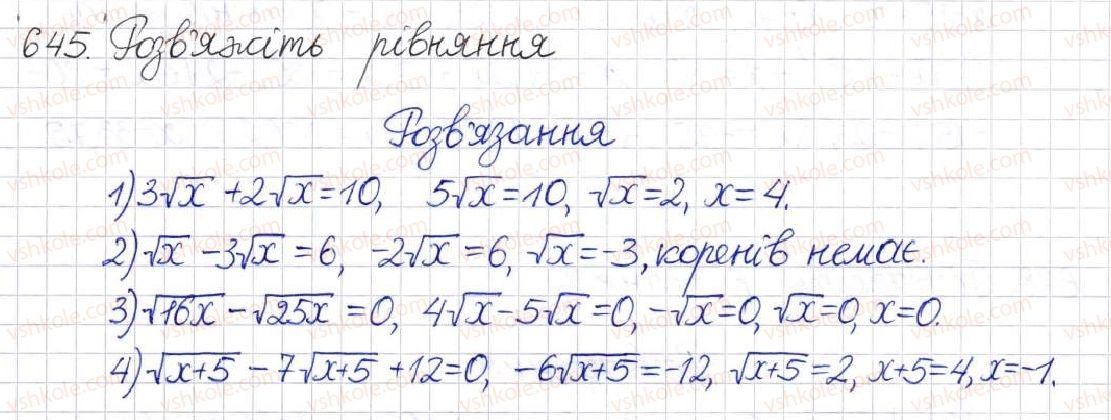 645. Розв'яжіть рівняння
Розв'язання
1) 3√x + 2√x = 10, 5√x = 10, √x = 2, x = 4.
2) √x - 3√x = 6, -2√x = 6, √x = -3, коренів немає.
3) √16x - √25x = 0, 4√x - 5√x = 0, -√x = 0, √x = 0, x = 0.
4) √x+5 - 7√x+5 + 12 = 0, -6√x+5 = -12, √x+5 = 2, x+5 = 4, x = -1.